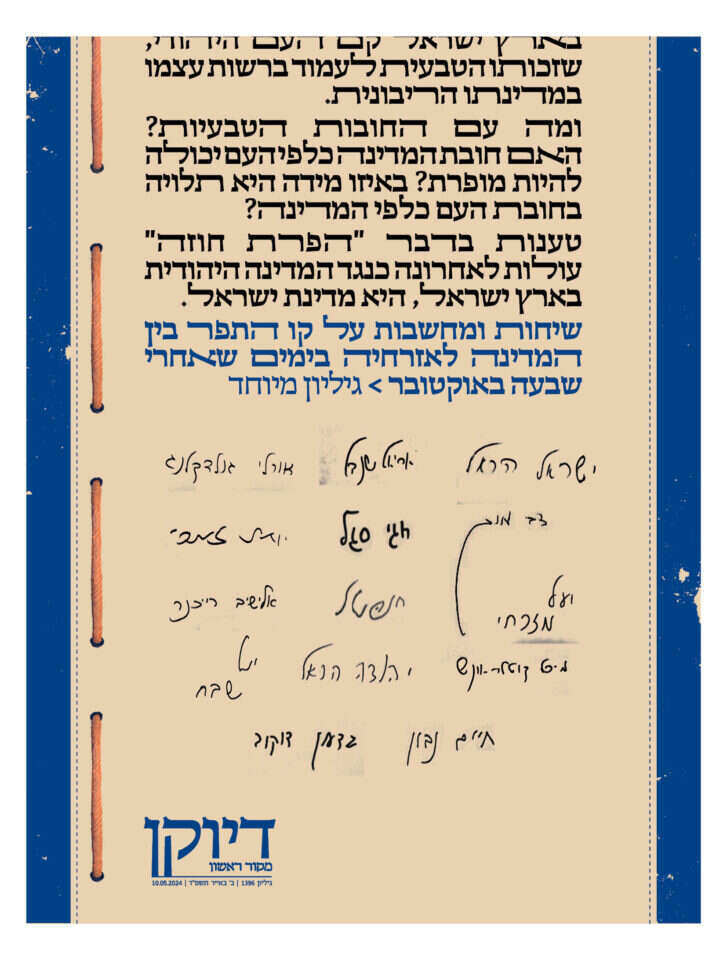 בארץ ישראל קם העם היהודי,
שזכותו הטבעית לעמוד ברשות עצמו
במדינתו הריבונית.
ומה עם החובות הטבעיות?
האם חובת המדינה כלפי העם יכולה
להיות מופרת? באיזו מידה היא תלויה
בחובת העם כלפי המדינה?
טענות בדבר "הפרת חוזה"
עולות לאחרונה כנגד המדינה היהודית
בארץ ישראל, היא מדינת ישראל.
שיחות ומחשבות על קו התפר בין
המדינה לאזרחיה בימים שאחרי
שבעה באוקטובר > גיליון מיוחד
ישראל הראל
אריאל שנבל
אורלי גולדקלנג
חגי סגל
יועל
מזרחי
אלישיב רייכנר
יהודה הראל
שבח
חיים נבון
דיוקן
מקור ראשון
גיליון 1396 | ב' באייר תשפ"ד | 10.05.2024